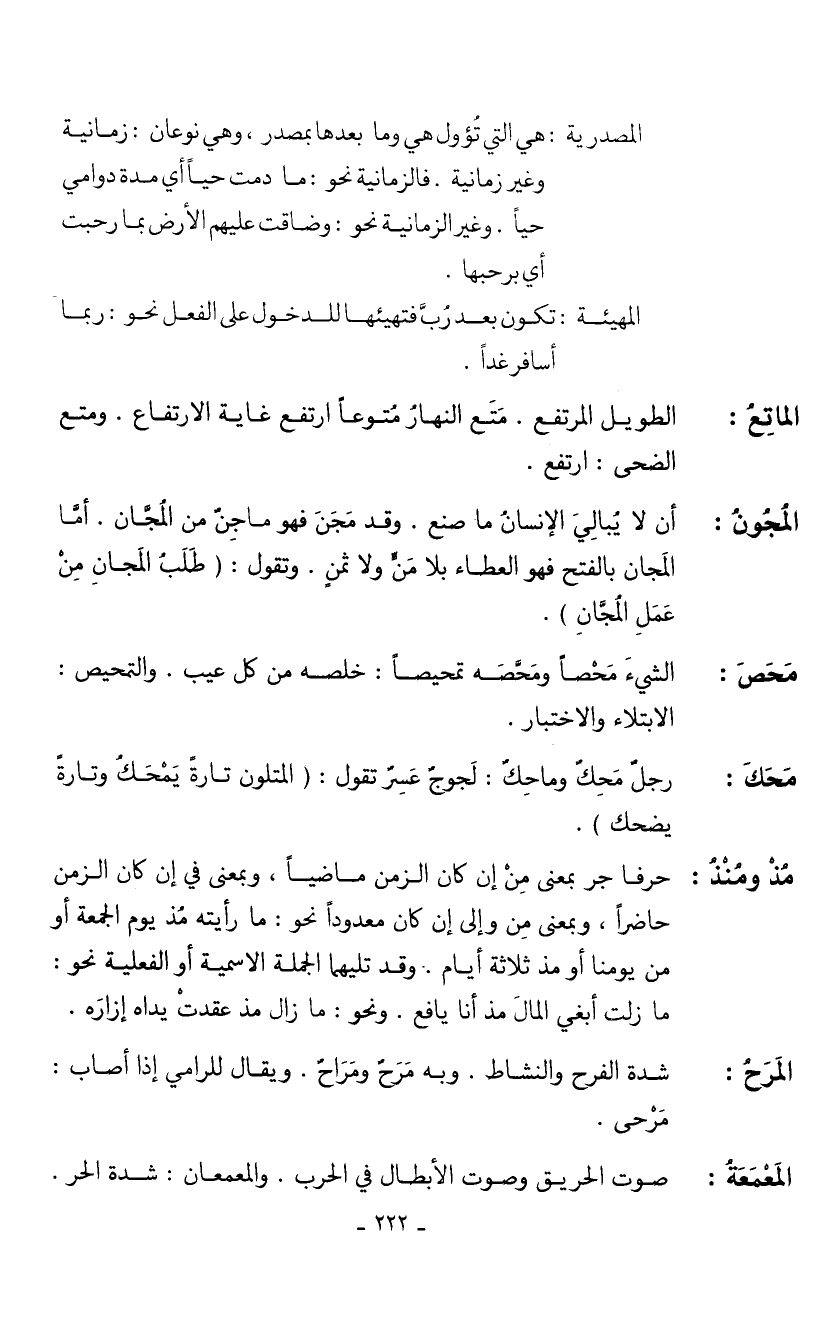 المصدرية : هي التي تُؤول هي وما بعدها بمصدر ، وهي نوعان : زمانية
وغير زمانية . فالزمانية نحو : ما دمت حياً أي مدة دوامي
حياً . وغير الزمانية نحو : وضاقت عليهم الأرض بما رحبت
أي برحبها .
المهيئة : تكون بعد رُبَّ فتهيئها للدخول على الفعل نحو : ربما
أسافر غداً .
الماتِعُ : الطويل المرتفع . مَتَع النهارُ مُتوعاً ارتفع غاية الارتفاع . ومتع
الضحى : ارتفع .
المُجُونُ : أن لا يُباليَ الإنسانُ ما صنع . وقد مَجَنَ فهو ماجِنٌ من المُجَّان . أمَّا
المَجان بالفتح فهو العطاء بلا مَنٍّ ولا ثمنٍ . وتقول : ( طَلَبُ المَجانِ مِنْ
عَمَلِ المُجَّانِ ) .
مَحَصَ : الشيءَ مَحْصاً ومَحَّصَه تمحيصاً : خلصه من كل عيب . والتمحيص :
الابتلاء والاختبار .
مَحَكَ : رجلٌ مَحِكٌ وماحِكٌ : لَجوجٌ عَسِرٌ تقول : ( المتلون تارةً يَمْحَكُ وتارةً
يضحك ) .
مُذْ ومُنْذُ : حرفا جر بمعنى مِنْ إن كان الزمن ماضياً ، وبمعنى في إن كان الزمن
حاضراً ، وبمعنى مِن وإلى إن كان معدوداً نحو : ما رأيته مُذ يوم الجمعة أو
من يومنا أو مذ ثلاثة أيام . وقد تليهما الجملة الاسمية أو الفعلية نحو :
ما زلت أبغي المالَ مذ أنا يافع . ونحو : ما زال مذ عقدتْ يداه إزارَه .
المَرَحُ : شدة الفرح والنشاط . وبه مَرَحٌ ومَرَاحٌ . ويقال للرامي إذا أصاب :
مَرْحى .
المَعْمَعَةُ : صوت الحريق وصوت الأبطال في الحرب . والمعمعان : شدة الحر .
- ٢٢٢ -